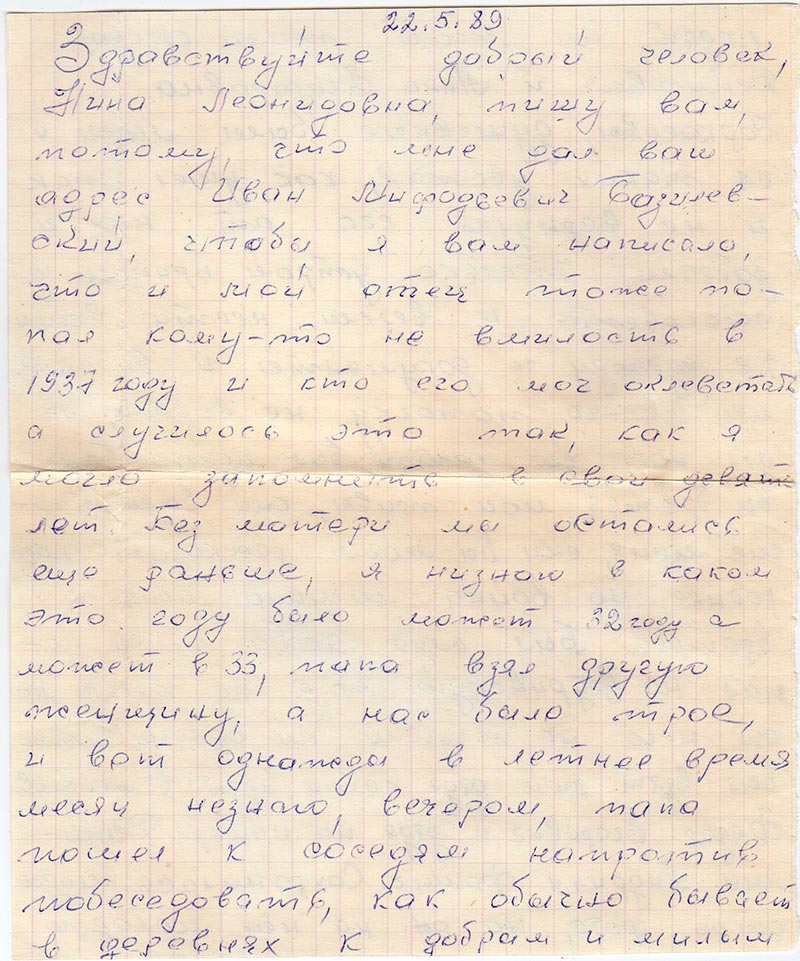 22.5.89
Здравствуйте добрый человек,
Нина Леонидовна, пишу вам,
потому, что мне дал ваш
адрес Иван Мифодьевич Базилев-
ский, чтобы я вам написала,
что и мой отец тоже по-
пал кому-то не вмилость в
1937 году и кто его мог оклеветать
а случилось это так, как я
могла запомнить в свои девять
лет. Без матери мы остались
еще раньше, я низнаю в каком
это году было может 32 году а
может в 33, папа взял другую
женщину, а нас было трое,
и вот однажды в летнее время
месяц незнаю, вечером, папа
пошел к соседям напротив
побеседовать, как обычно бывает
в деревнях к добрым и милым